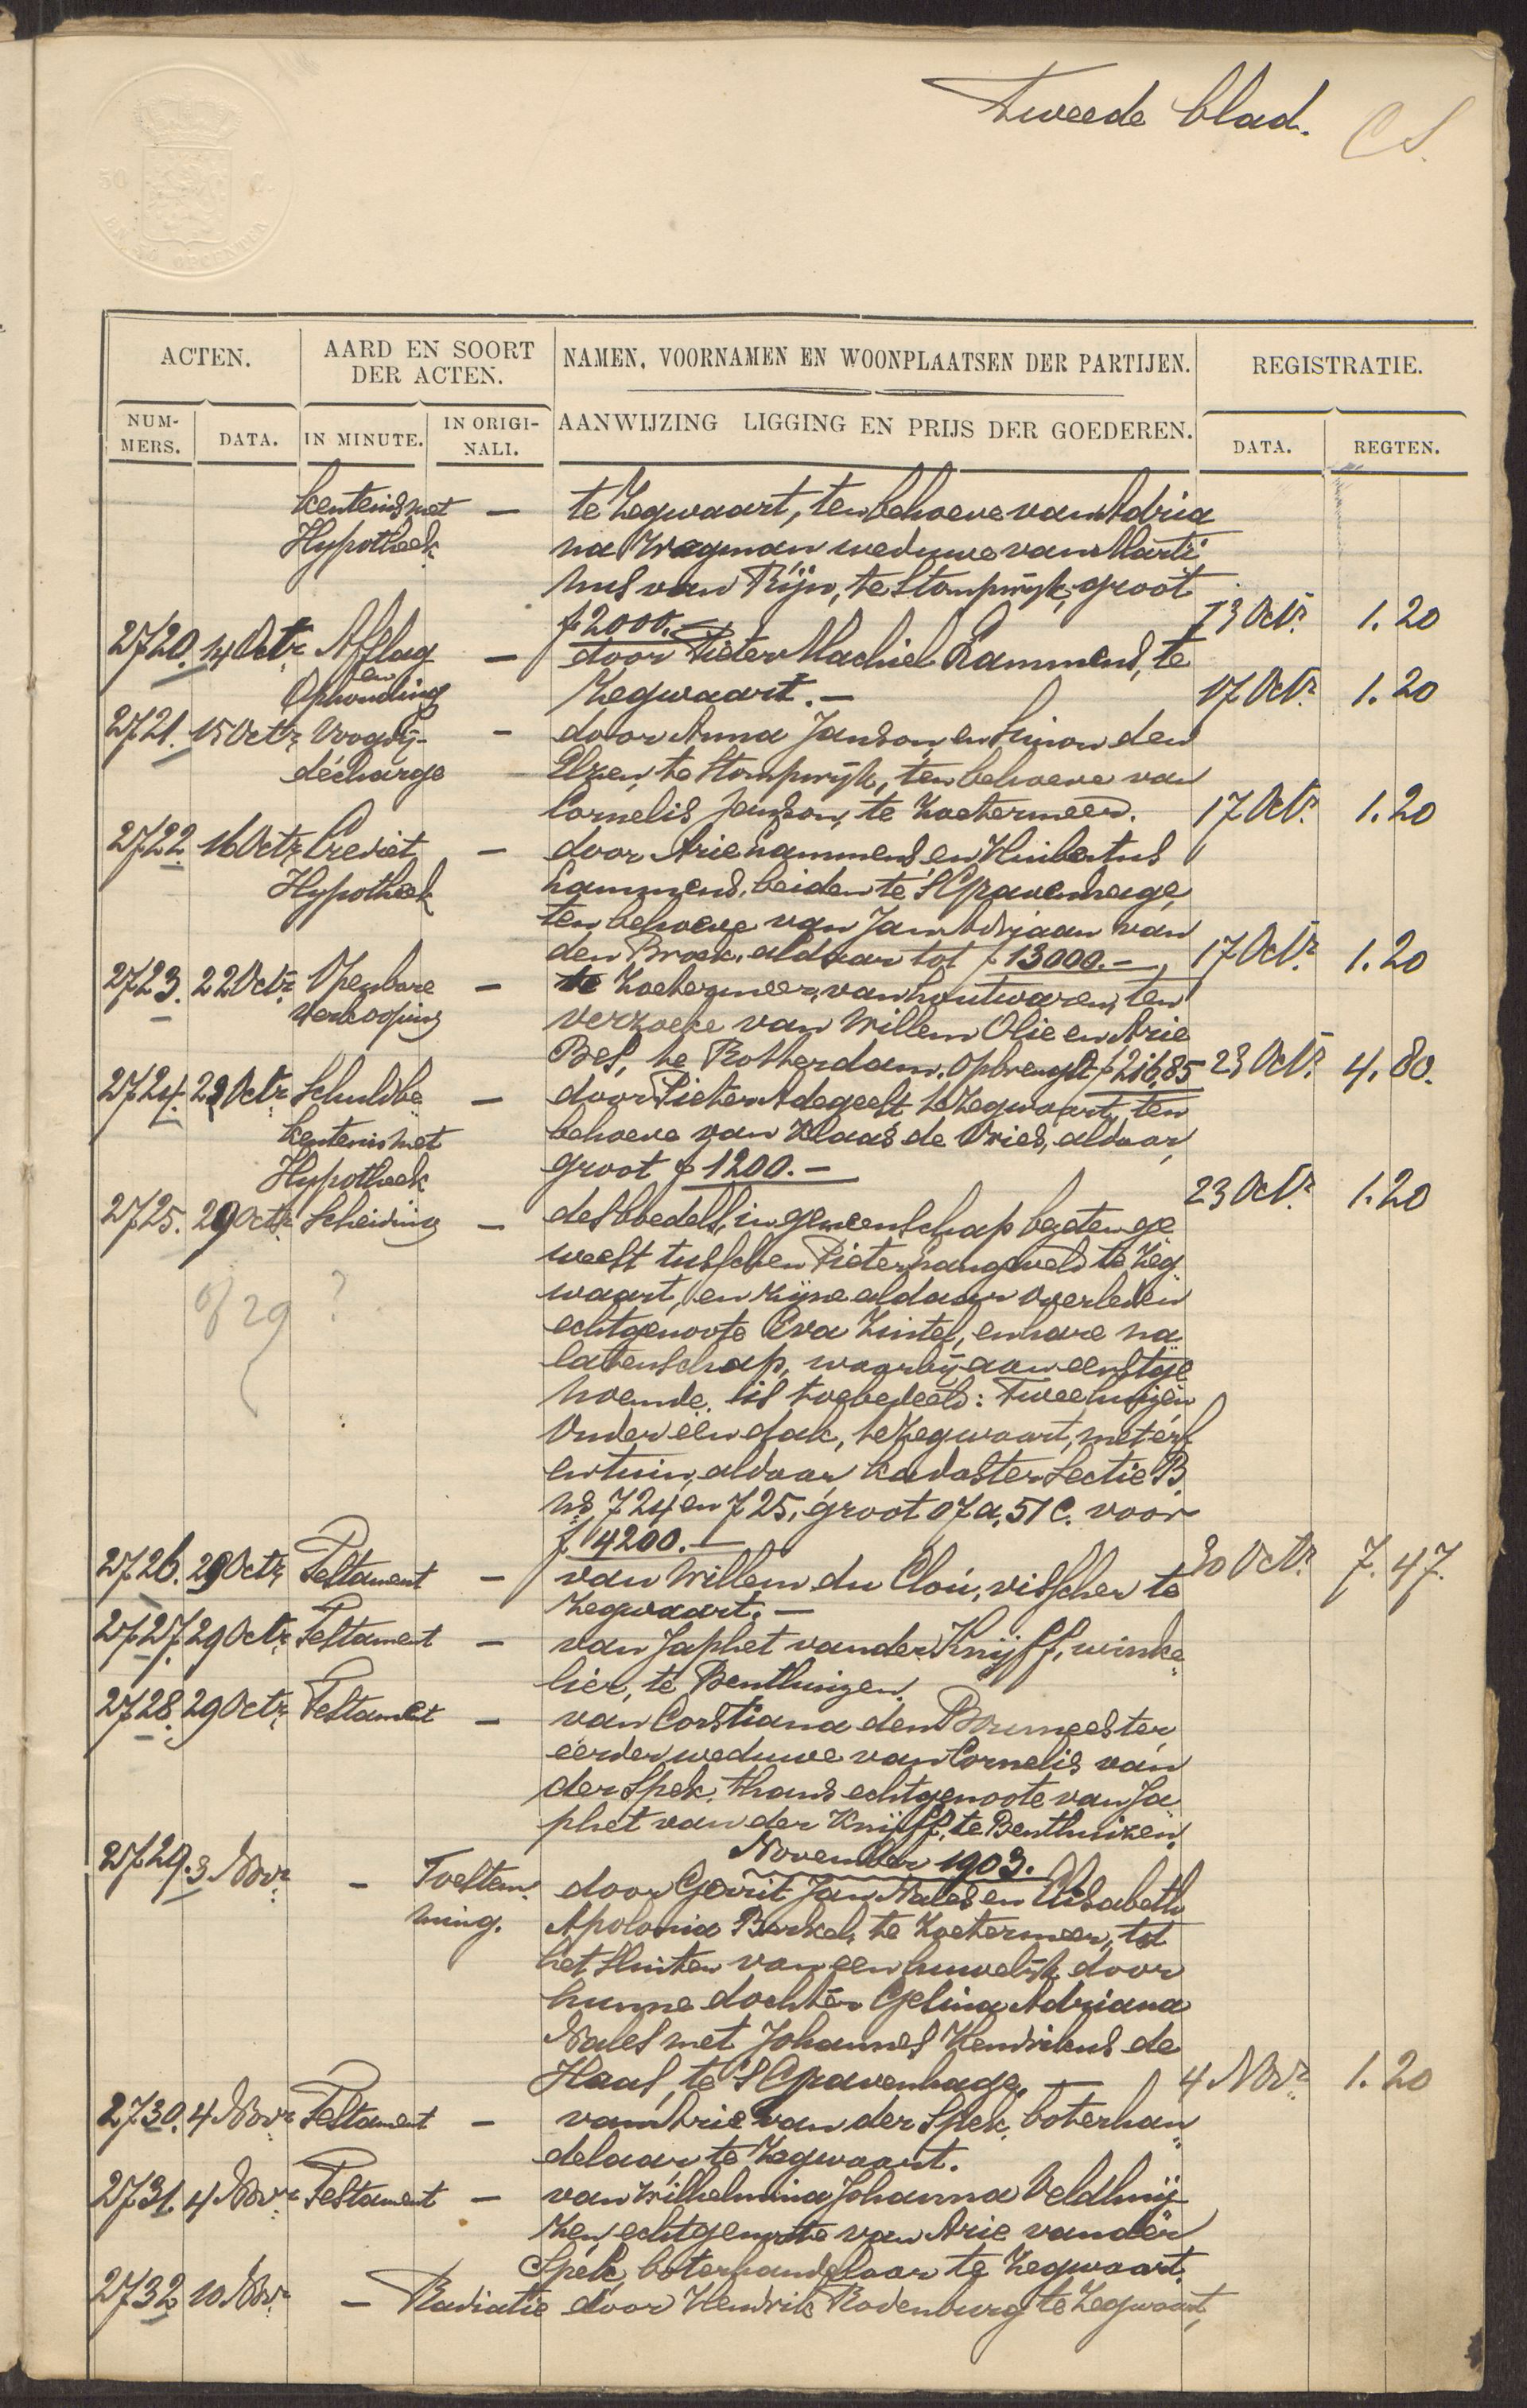 Tweede blad. CS.
50 C.
ACTEN.
AARD EN SOORT DER ACTEN.
NAMEN, VOORNAMEN EN WOONPLAATSEN DER PARTIJEN.
REGISTRATIE.
NUM-MERS.
DATA.
IN MINUTE.
IN ORIGI-NALI.
AANWIJZING LIGGING EN PRIJS DER GOEDEREN.
DATA.
REGTEN.
kentenis met — te Zegwaart, ten behoeve van Adria
Hypotheek na Wagman weduwe van Marti
nus van Rijn, te Stompwijk, groot
f 2000.— 13 Octr. 1.20
2720. 14 Octr. Afslag — door Pieter Machiel Lammens, te
en
Ophouding Zegwaart.— 17 Octr. 1.20
2721. 15 Octr. Voogdij- — door Anna Janson en Simon den
décharge Elzen, te Stompwijk, ten behoeve van
Cornelis Janson, te Zoetermeer. 17 Octr. 1.20
2722 16 Octr. Crediet — door Arie Lammens en Huibertus
Hypotheek Lammens, beiden te 's Gravenhage,
ten behoeve van Jan Adriaan van
den Broek, aldaar tot f 13000.—, 17 Octr. 1.20
2723. 22 Octr. Openbare — te Zoetermeer, van houtwaren, ten
verkooping verzoeke van Willem Olie en Arie
Bes, te Rotterdam. Opbrengst f 216,85 23 Octr. 4.80.
2724. 22 Octr. Schuldbe — door Pieter Adegeest te Zegwaart, ten
kentenis met behoeve van Klaas de Vries, aldaar,
Hypotheek groot f 1200.— 23 Octr. 1.20
2725. 29 Octr. Scheiding — des boedels, in gemeenschap bezeten ge
weest tusschen Pieter Langeveld te Zeg
of 29 ? waart, en zijne aldaar overleden
echtgenoote Eva Zuitel, en hare na
latenschap, waarbij aan eerstge
noemde is toebedeeld: Twee huizen
onder één dak, te Zegwaart, met erf
en tuin, aldaar kadaster Sectie B.
ns 724 en 725, groot 07 a, 51 c. voor
f 4200.— 30 Octr. 7.47.
2726. 29 Octr. Testament — van Willem du Cloú, visscher te
Zegwaart.—
2727. 29 Octr. Testament — van Japhet van der Knijff, winke
lier, te Benthuizen.
2728. 29 Octr. Testament — van Corstiana den Boumeester,
eerder weduwe van Cornelis van
der Spek, thans echtgenoote van Ja
phet van der Knijff, te Benthuizen.
November 1903.
2729. 3 Novr. — Toestem- door Gerrit Jan Nales en Elisabeth
ming. Apolonia Berkel, te Zoetermeer, tot
het sluiten van een huwelijk door
hunne dochter Gelina Adriana
Nales met Johannes Hendrikus de
Haas, te 's Gravenhage.— 4 Novr. 1.20
2730. 4 Novr. Testament — van Arie van der Spek, boterhan
delaar, te Zegwaart.
2731. 4 Novr. Testament — van Wilhelmina Johanna Veldhuij
zen, echtgenoote van Arie van der
Spek, boterhandelaar te Zegwaart.
2732 10 Novr. — Radiatie door Hendrik Rodenburg te Zegwaart,